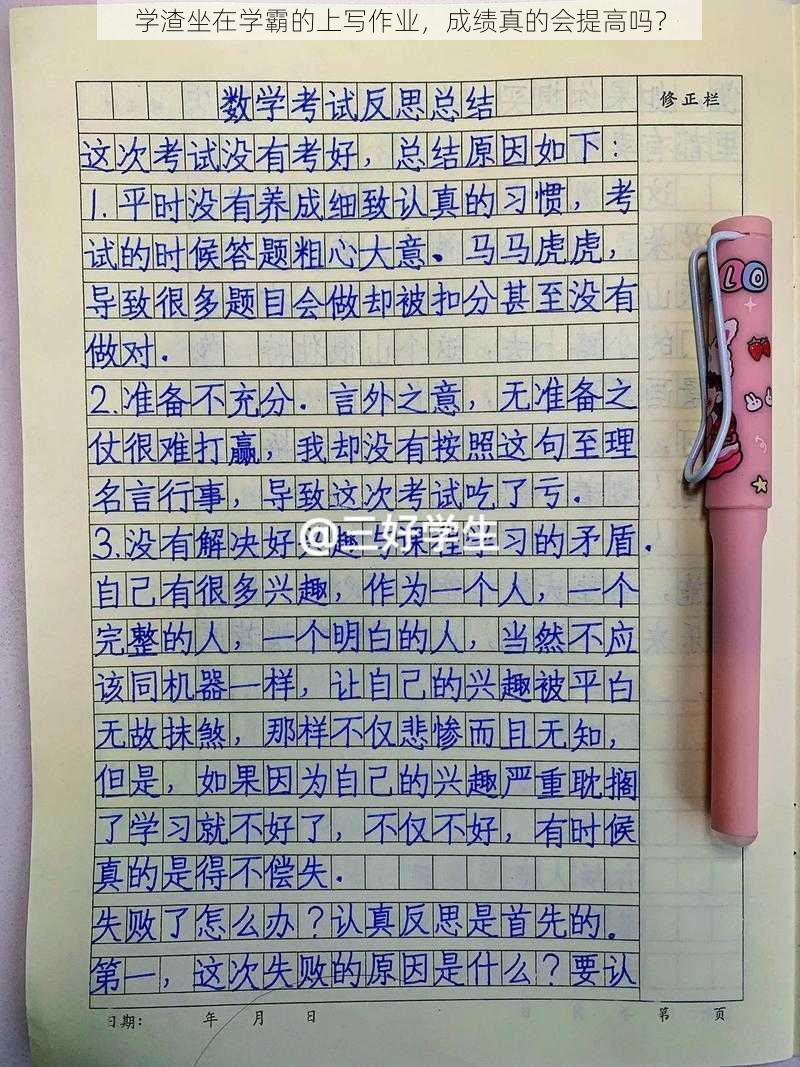 学渣坐在学霸的上写作业，成绩真的会提高吗？
数学考试反思总结
修正栏
这次考试没有考好，总结原因如下：
1.平时没有养成细致认真的习惯，考
试的时候答题粗心大意．马马虎虎，
导致很多题目会做却被扣分甚至没有
做对．
2.准备不充分．言外之意，无准备之
仗很难打赢，我却没有按照这句至理
名言行事，导致这次考试吃了亏．
3.没有解决好 趣与课程学习的矛盾．
@三好学生
自己有很多兴趣，作为一个人，一个
完整的人，一个明白的人，当然不应
该同机器一样，让自己的兴趣被平白
无故抹煞，那样不仅悲惨而且无知，
但是，如果因为自己的兴趣严重耽搁
了学习就不好了，不仅不好，有时候
真的是得不偿失．
失败了怎么办？认真反思是首先的。
第一，这次失败的原因是什么？要认
日期： 年 月 日 第 页
LO